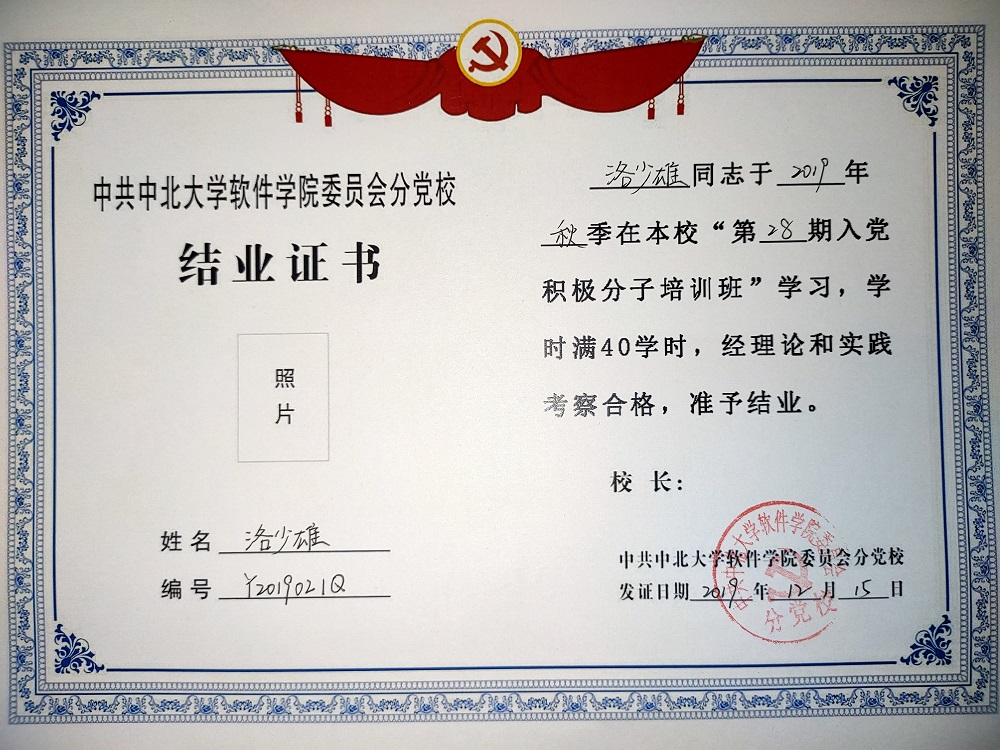 中共中北大学软件学院委员会分党校
结业证书
照
片
姓名 洛少雄
编号 Y2019021Q
洛少雄同志于2019年
秋季在本校“第28期入党
积极分子培训班”学习，学
时满40学时，经理论和实践
考察合格，准予结业。
校 长：
中共中北大学软件学院委员会分党校
发证日期 2019年12月15日
中共中北大学软件学院委员会
分党校